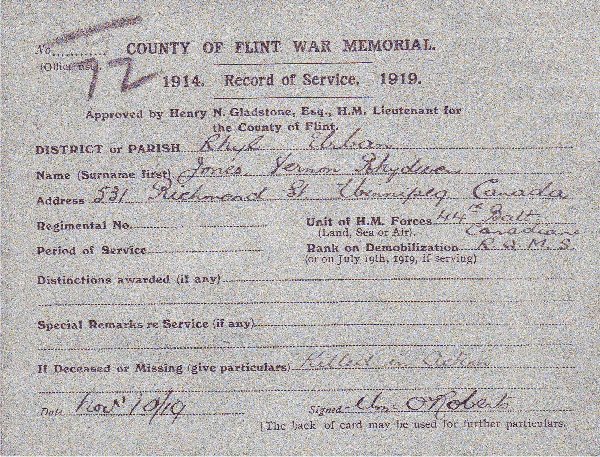 No.
(Office use)
72
COUNTY OF FLINT WAR MEMORIAL.
1914. Record of Service, 1919.
Approved by Henry N. Gladstone, Esq., H.M. Lieutenant for
the County of Flint.
DISTRICT or PARISH Rhyl Urban
Name (Surname first) Jones Vernon
Address 531 Richmond St Winnipeg Canada
Regimental No.
Unit of H.M. Forces 44th Batt
(Land, Sea or Air). Canadians
Period of Service
Rank on Demobilization R.Q.M.S.
(or on July 19th, 1919, if serving)
Distinctions awarded (if any)
Special Remarks re Service (if any)
If Deceased or Missing (give particulars) Killed in Action
Date Nov 10/19
Signed Wm O Roberts
[The back of card may be used for further particulars.